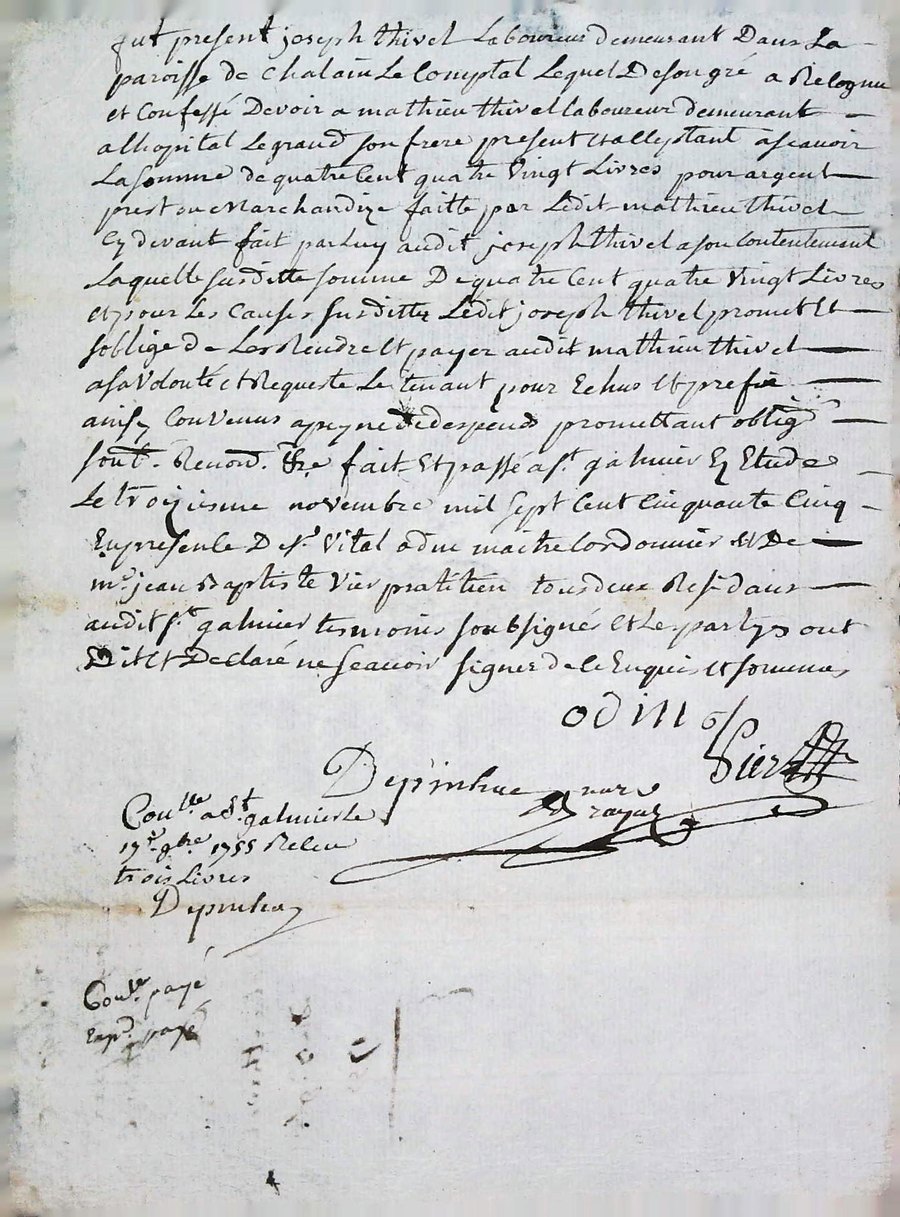 fut present joseph thivel Laboureur demeurant Dans La
paroisse de Chalain Le Comptal Lequel De son gré a Recognu
et Confessé Devoir a mathieu thivel Laboureur demeurant
a lhopital Le grand son frere present et acceptant ascavoir
La somme de quatre Cent quatre Vingt Livres pour argent
prest ou Marchandize faitte par Ledit mathieu thivel
Cy devant fait par Luy audit joseph thivel a son Contentement
Laquelle susditte somme De quatre Cent quatre Vingt Livres
et pour Les Causes susdittes Ledit joseph thivel promet Et
soblige de Les Rendre Et payer audit mathieu thivel
a sa Volonté et Requeste Le tenant pour Echus Et prefix
ainsy Convenus a peyne de despends promettant oblig.
soub. Renon. &ce fait Et passé a st. galmier En Etude
Le troizieme novembre mil sept Cent Cinquante Cinq
En presence De sr. Vital odin maitre Cordonnier et De
me. jean Baptiste Vier pratitien tous deux Residans
audit st. galmier tesmoins soubsignés Et Les partyes ont
Dit Et Declaré ne scavoir signer de ce Enquis et sommes
odin
Vier
Depinhac
nore
rayal
Con.lle a St. galmier Le
17e. 9bre. 1755 Receu
trois Livres
Depinhac
Con.lle payé
Exp.on payé